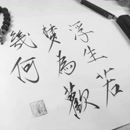 浮生若
夢為歡
幾何